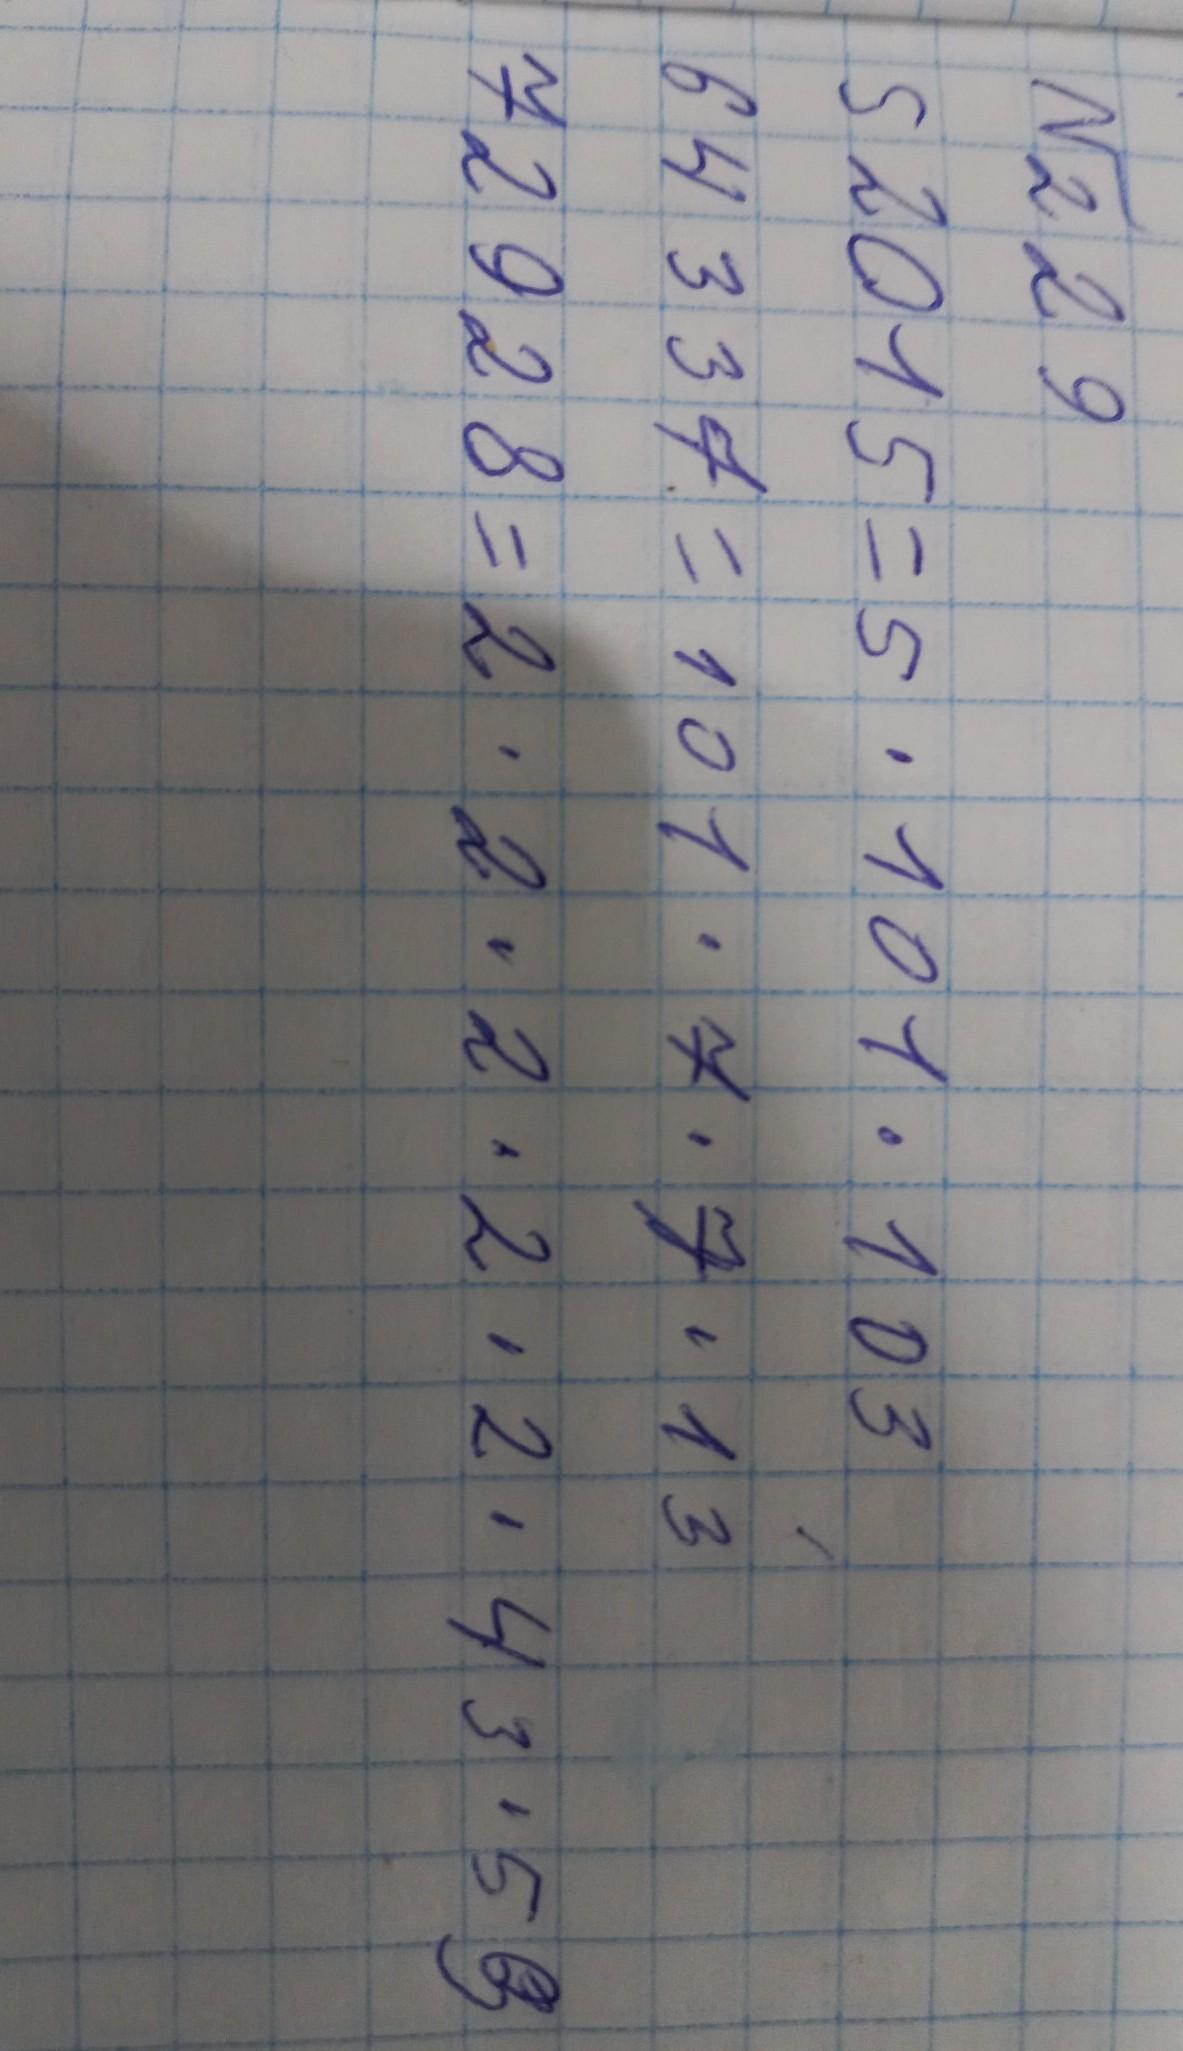 N229
52015=5·101·103
64337=101·7·7·13
72928=2·2·2·2·2·43·53